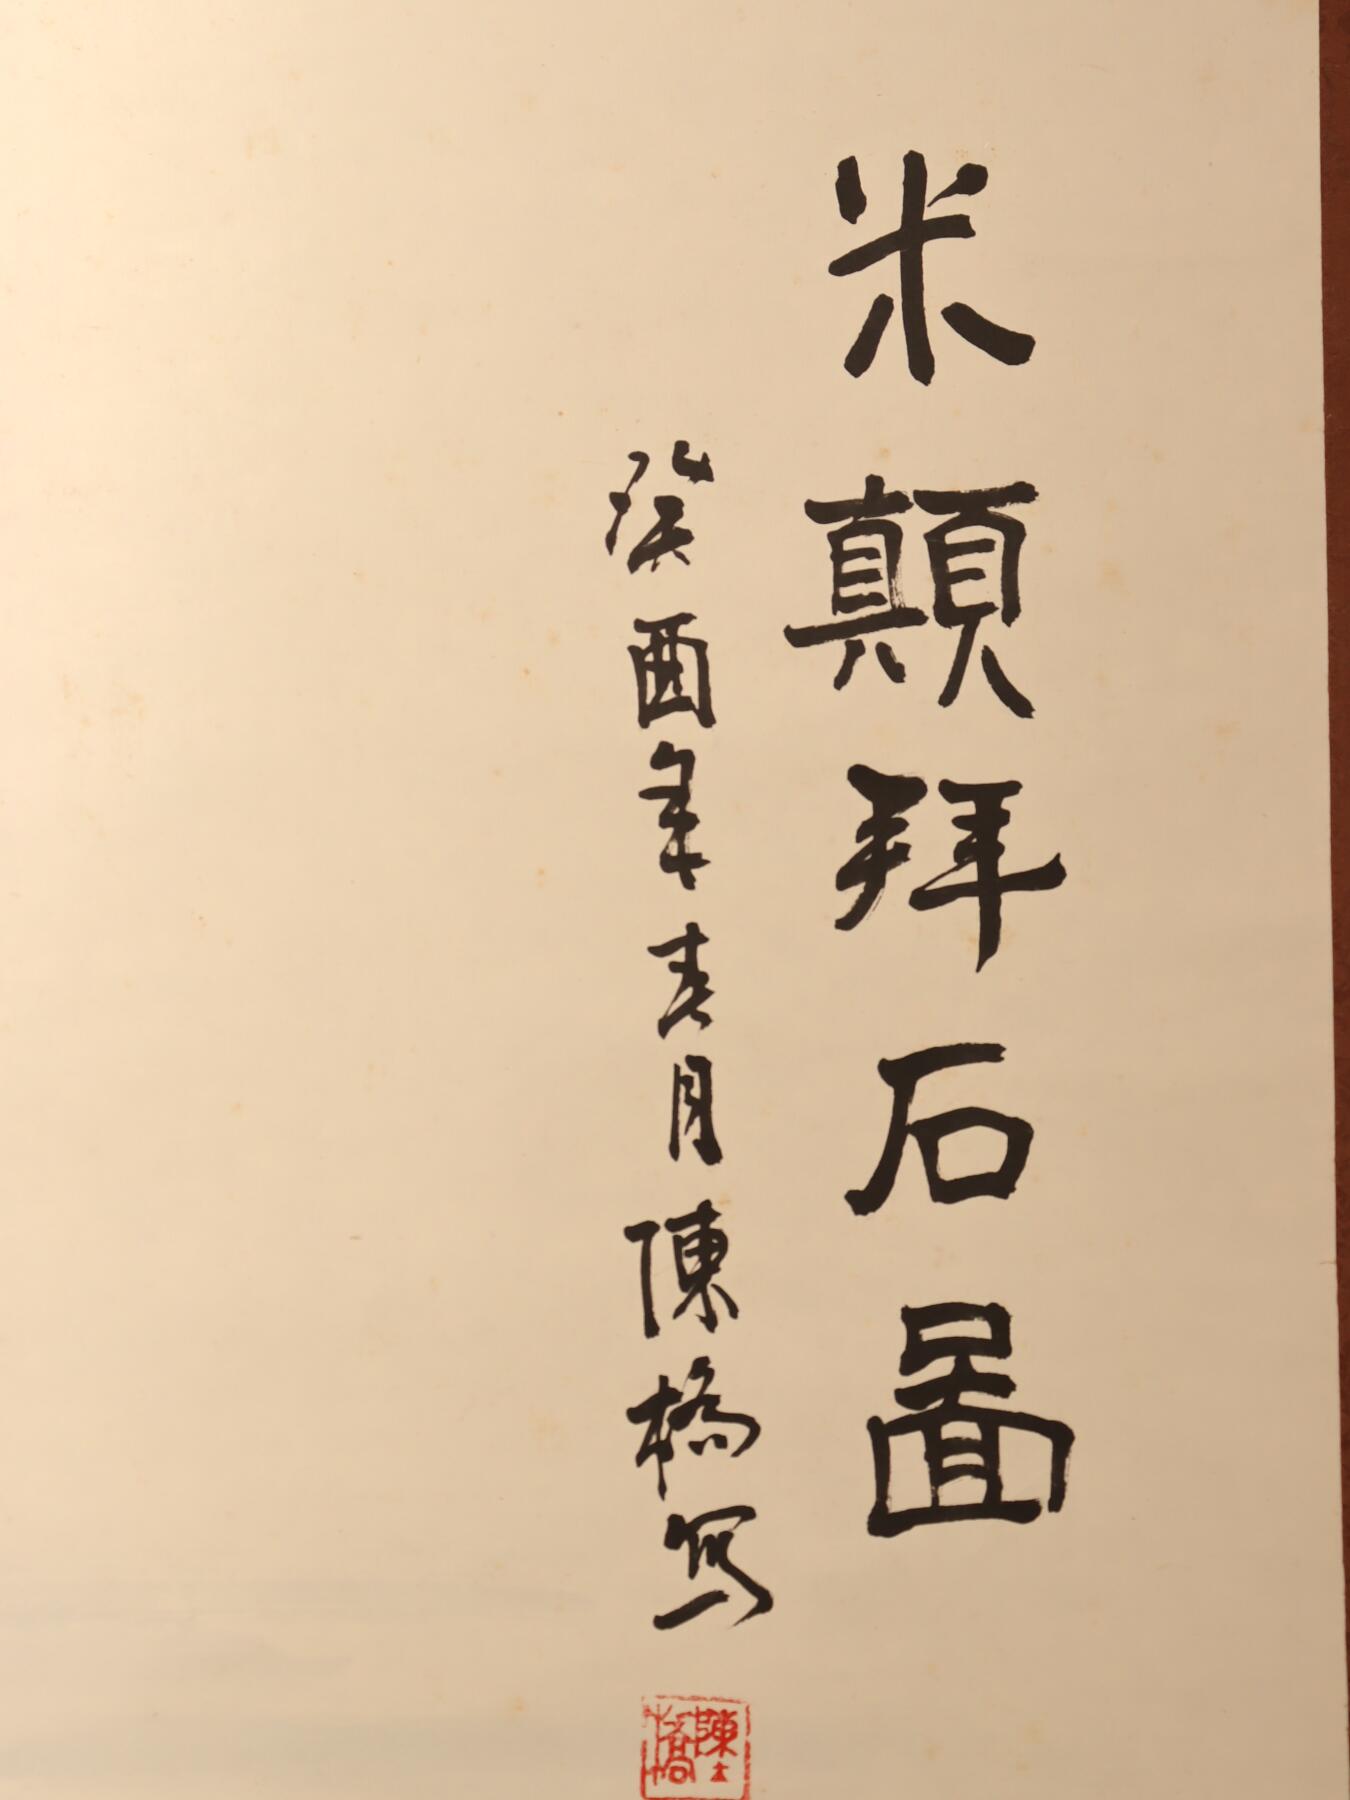 米顛拜石圖
癸酉年春月陳橋寫
陳士橋